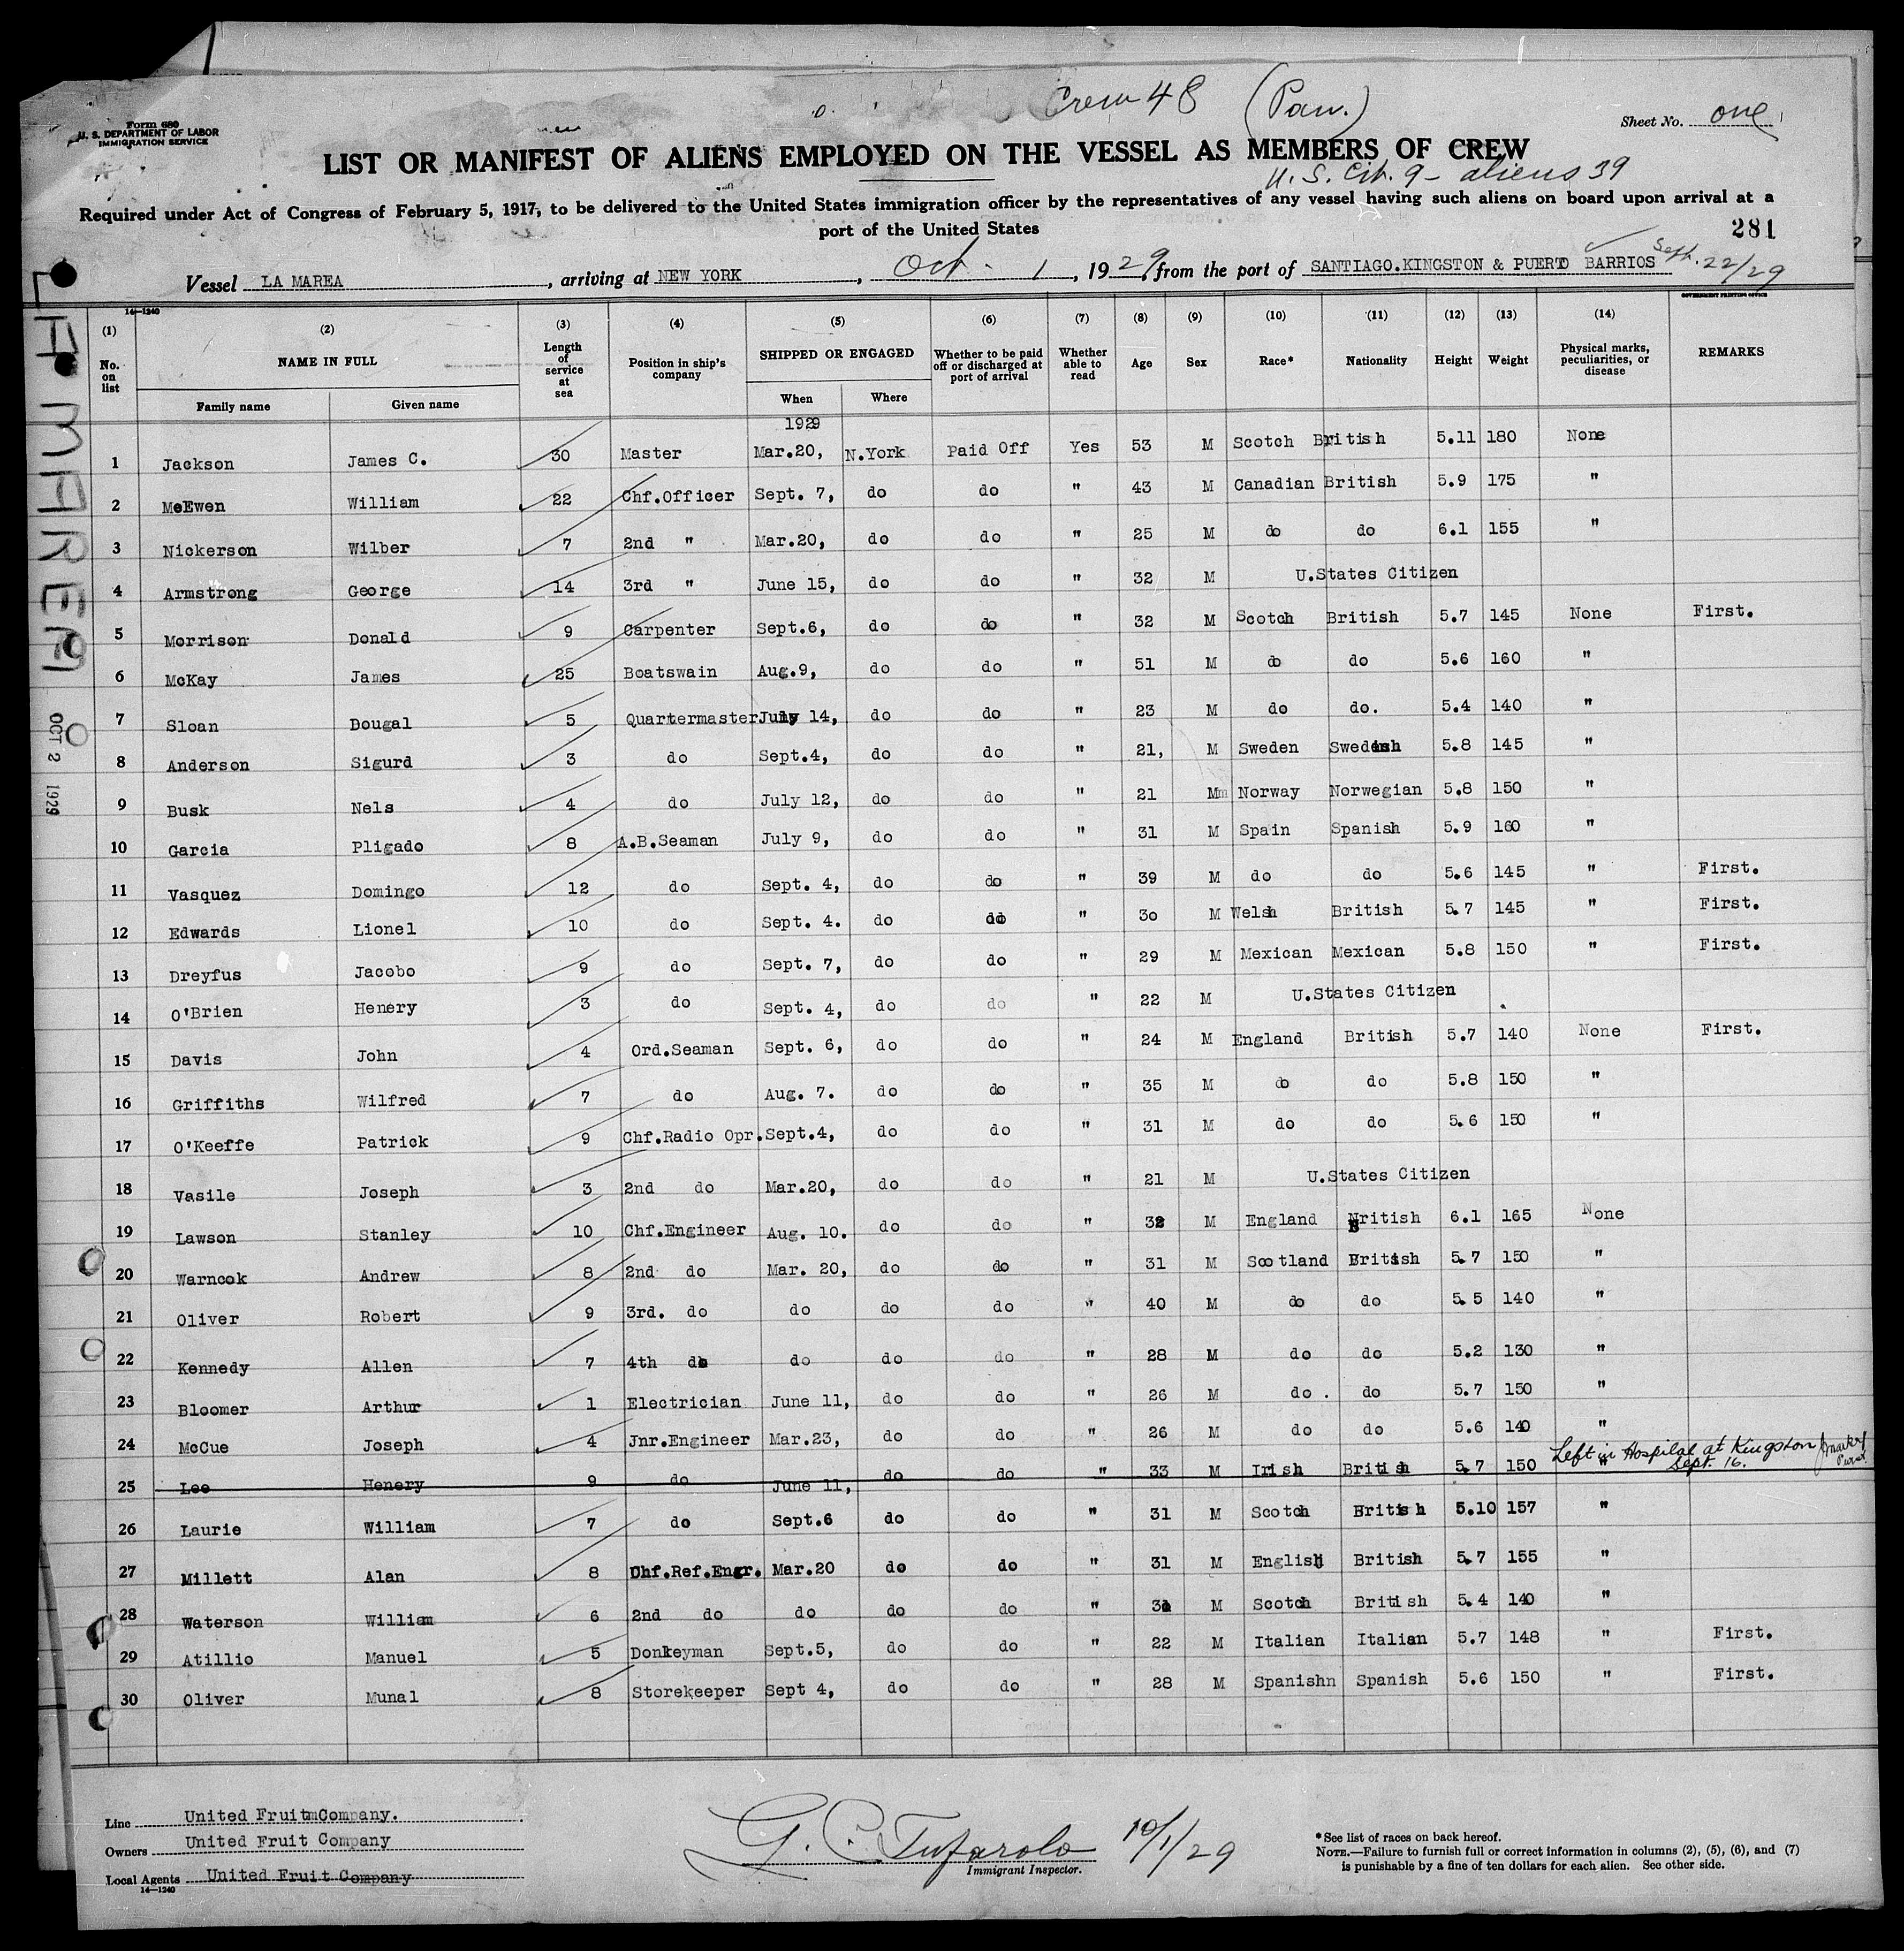 Crew 48 (Pan.)
Form 680
U. S. DEPARTMENT OF LABOR
IMMIGRATION SERVICE
Sheet No. one
LIST OR MANIFEST OF ALIENS EMPLOYED ON THE VESSEL AS MEMBERS OF CREW
U.S. Cit. 9 - aliens 39
Required under Act of Congress of February 5, 1917, to be delivered to the United States immigration officer by the representatives of any vessel having such aliens on board upon arrival at a
port of the United States
281
Vessel LA MAREA, arriving at NEW YORK, Oct. 1, 1929, from the port of SANTIAGO.KINGSTON & PUERTO BARRIOS Sept. 22/29
14—1240
GOVERNMENT PRINTING OFFICE
(1) (2) (3) (4) (5) (6) (7) (8) (9) (10) (11) (12) (13) (14)
No. on list NAME IN FULL Length of service at sea Position in ship's company SHIPPED OR ENGAGED Whether to be paid off or discharged at port of arrival Whether able to read Age Sex Race* Nationality Height Weight Physical marks, peculiarities, or disease REMARKS
Family name Given name When Where
1929
1 Jackson James C. 30 Master Mar.20, N.York Paid Off Yes 53 M Scotch British 5.11 180 None
2 McEwen William 22 Chf.Officer Sept. 7, do do " 43 M Canadian British 5.9 175 "
3 Nickerson Wilber 7 2nd " Mar.20, do do " 25 M do do 6.1 155 "
4 Armstrong George 14 3rd " June 15, do do " 32 M U.States Citizen
5 Morrison Donald 9 Carpenter Sept.6, do do " 32 M Scotch British 5.7 145 None First.
6 McKay James 25 Boatswain Aug.9, do do " 51 M do do 5.6 160 "
7 Sloan Dougal 5 Quartermaster July 14, do do " 23 M do do. 5.4 140 "
8 Anderson Sigurd 3 do Sept.4, do do " 21, M Sweden Swedish 5.8 145 "
9 Busk Nels 4 do July 12, do do " 21 M Norway Norwegian 5.8 150 "
10 Garcia Pligado 8 A.B.Seaman July 9, do do " 31 M Spain Spanish 5.9 160 "
11 Vasquez Domingo 12 do Sept. 4, do do " 39 M do do 5.6 145 " First.
12 Edwards Lionel 10 do Sept. 4. do do " 30 M Welsh British 5.7 145 " First.
13 Dreyfus Jacobo 9 do Sept. 7, do do " 29 M Mexican Mexican 5.8 150 " First.
14 O'Brien Henery 3 do Sept. 4, do do " 22 M U.States Citizen
15 Davis John 4 Ord.Seaman Sept. 6, do do " 24 M England British 5.7 140 None First.
16 Griffiths Wilfred 7 do Aug. 7. do do " 35 M do do 5.8 150 "
17 O'Keeffe Patrick 9 Chf.Radio Opr. Sept.4, do do " 31 M do do 5.6 150 "
18 Vasile Joseph 3 2nd do Mar.20, do do " 21 M U.States Citizen
19 Lawson Stanley 10 Chf.Engineer Aug. 10. do do " 32 M England British 6.1 165 None
20 Warnock Andrew 8 2nd do Mar. 20, do do " 31 M Scotland British 5.7 150 "
21 Oliver Robert 9 3rd. do do do do " 40 M do do 5.5 140 "
22 Kennedy Allen 7 4th do do do do " 28 M do do 5.2 130 "
23 Bloomer Arthur 1 Electrician June 11, do do " 26 M do. do 5.7 150 "
24 McCue Joseph 4 Jnr.Engineer Mar.23, do do " 26 M do do 5.6 140 "
Left in Hospital at Kingston Sept. 16.
25 Lee Henery 9 do June 11, do do " 33 M Irish British 5.7 150 "
26 Laurie William 7 do Sept.6 do do " 31 M Scotch British 5.10 157 "
27 Millett Alan 8 Chf.Ref.Engr. Mar.20 do do " 31 M English British 5.7 155 "
28 Waterson William 6 2nd do do do do " M Scotch British 5.4 140 "
29 Atillio Manuel 5 Donkeyman Sept.5, do do " 22 M Italian Italian 5.7 148 " First.
30 Oliver Munal 8 Storekeeper Sept 4, do do " 28 M Spanishn Spanish 5.6 150 " First.
LA MAREA
OCT 2 1929
Line United FruitmCompany.
Owners United Fruit Company
Local Agents United Fruit Company
14—1240
G. C. Tufarolo 10/1/29
Immigrant Inspector.
*See list of races on back hereof.
NOTE.—Failure to furnish full or correct information in columns (2), (5), (6), and (7)
is punishable by a fine of ten dollars for each alien. See other side.